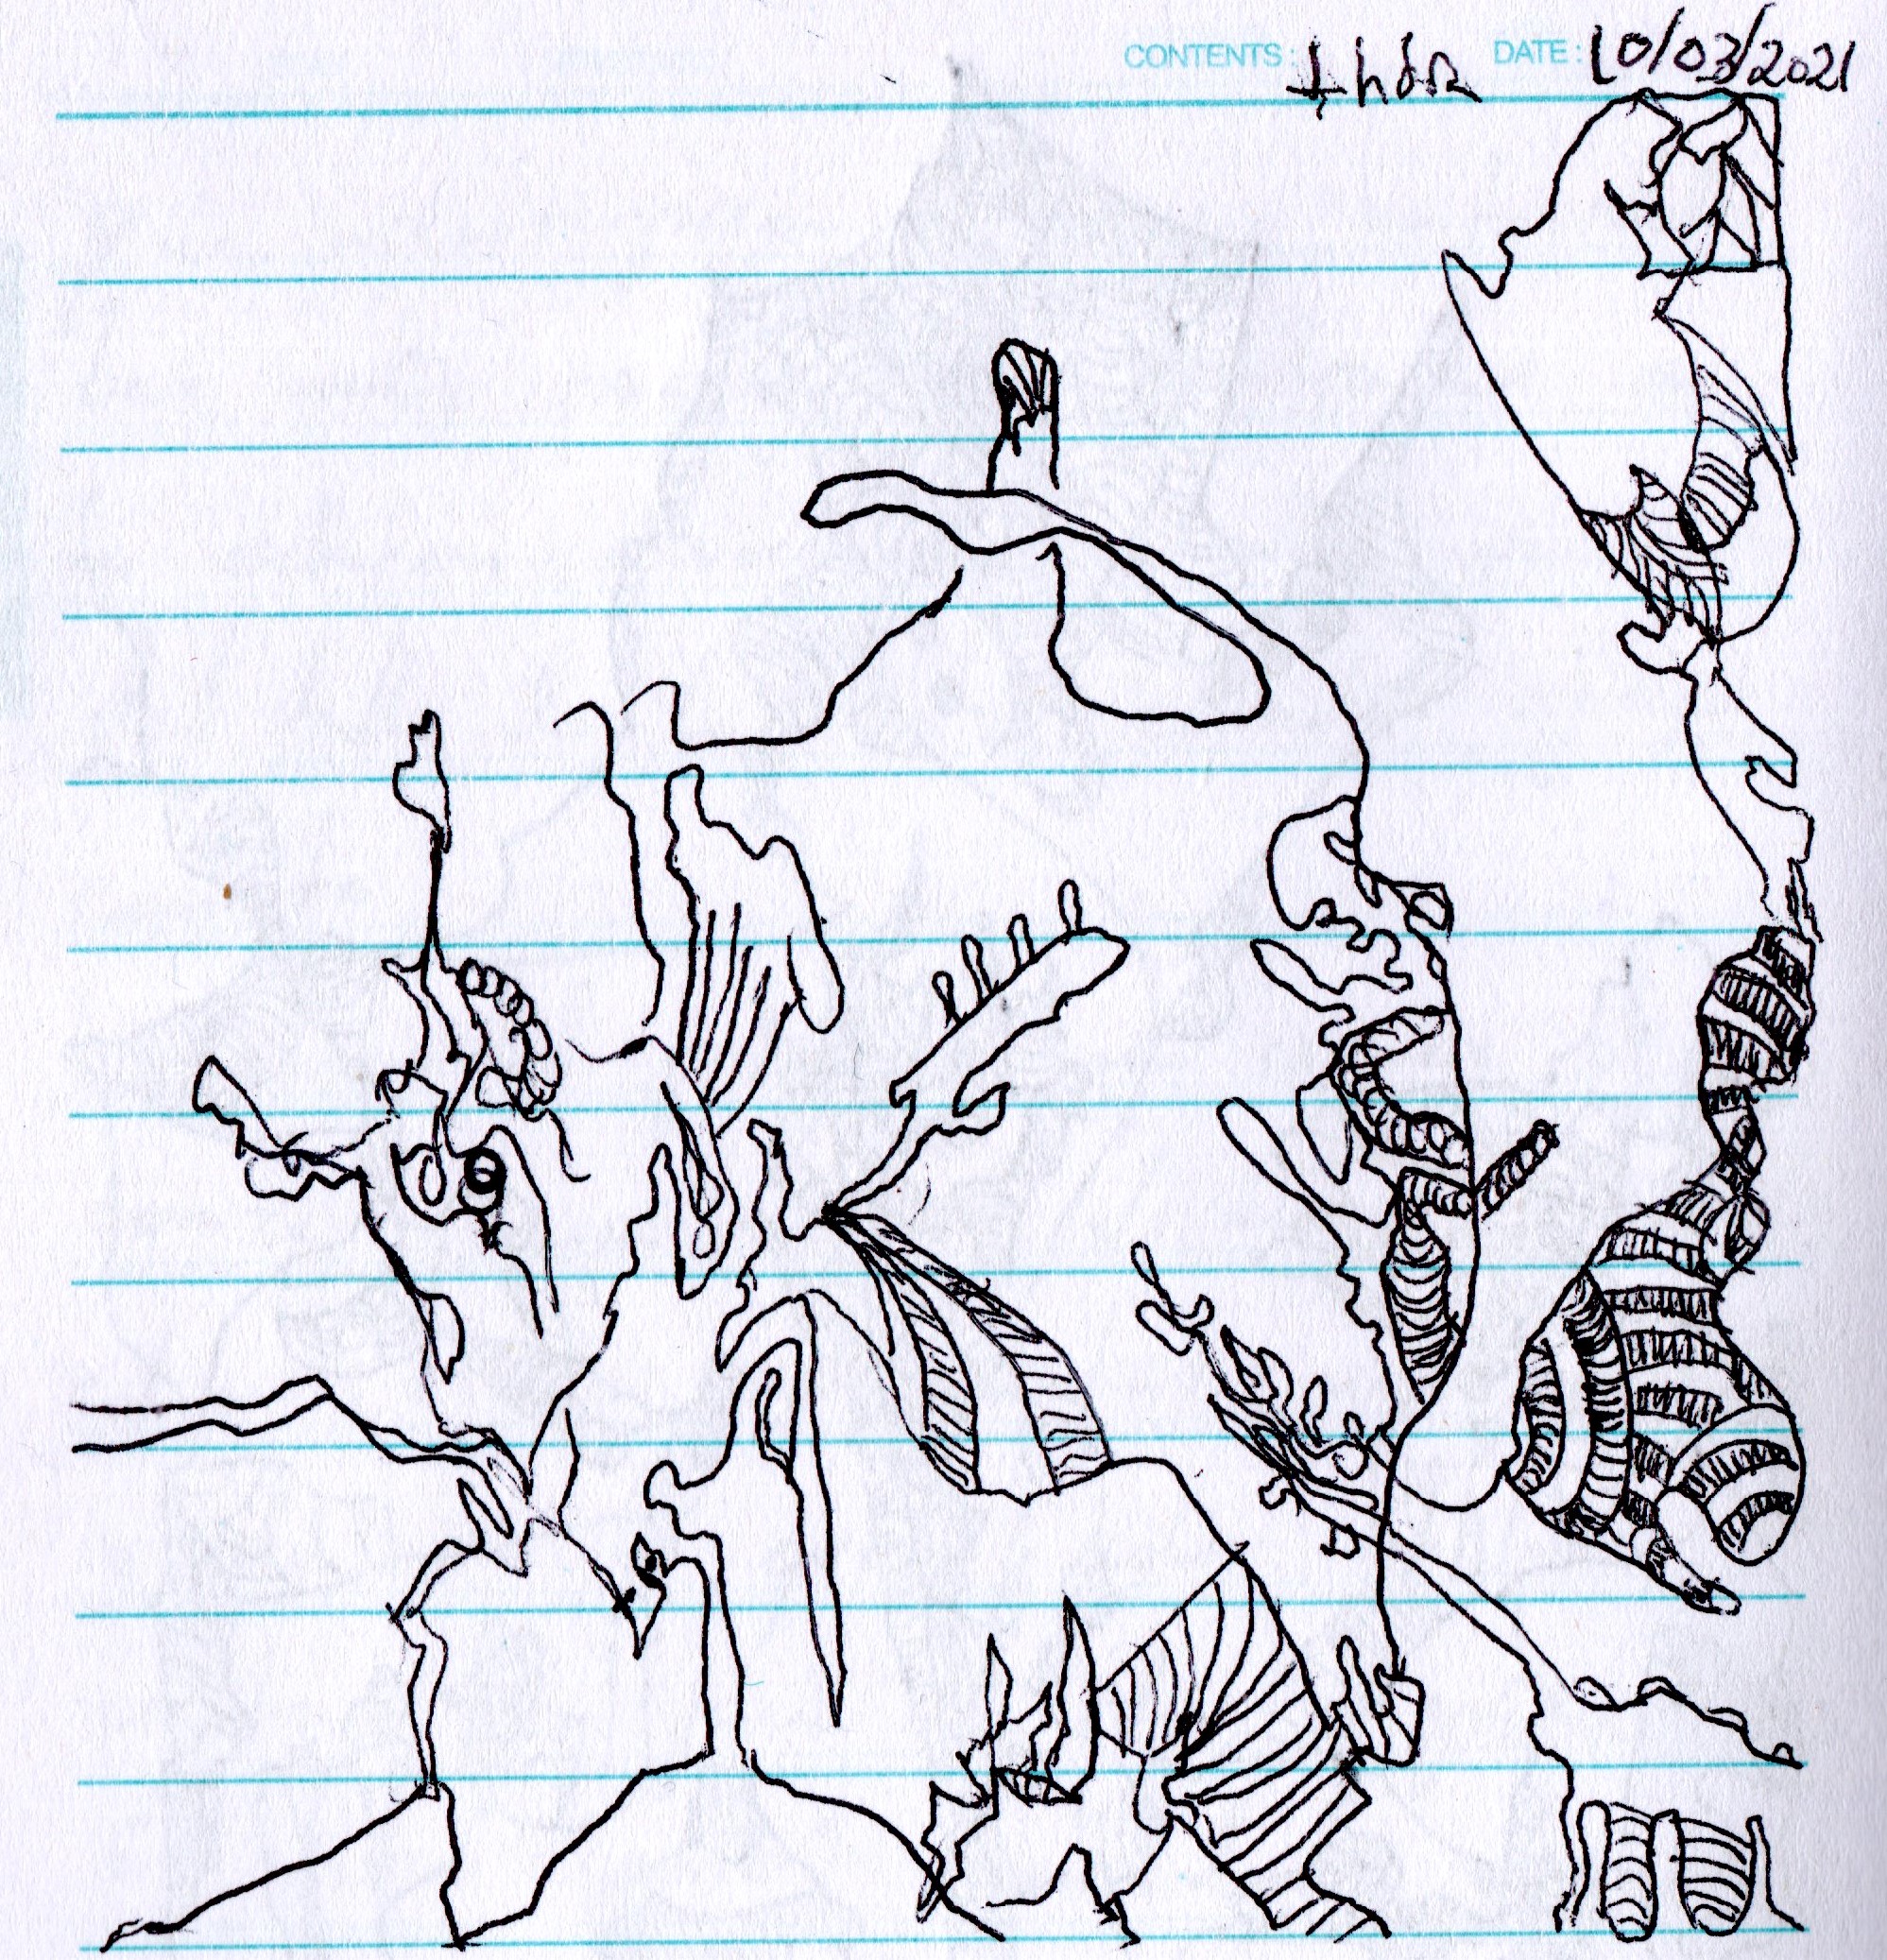 CONTENTS: DATE: 10/03/2021